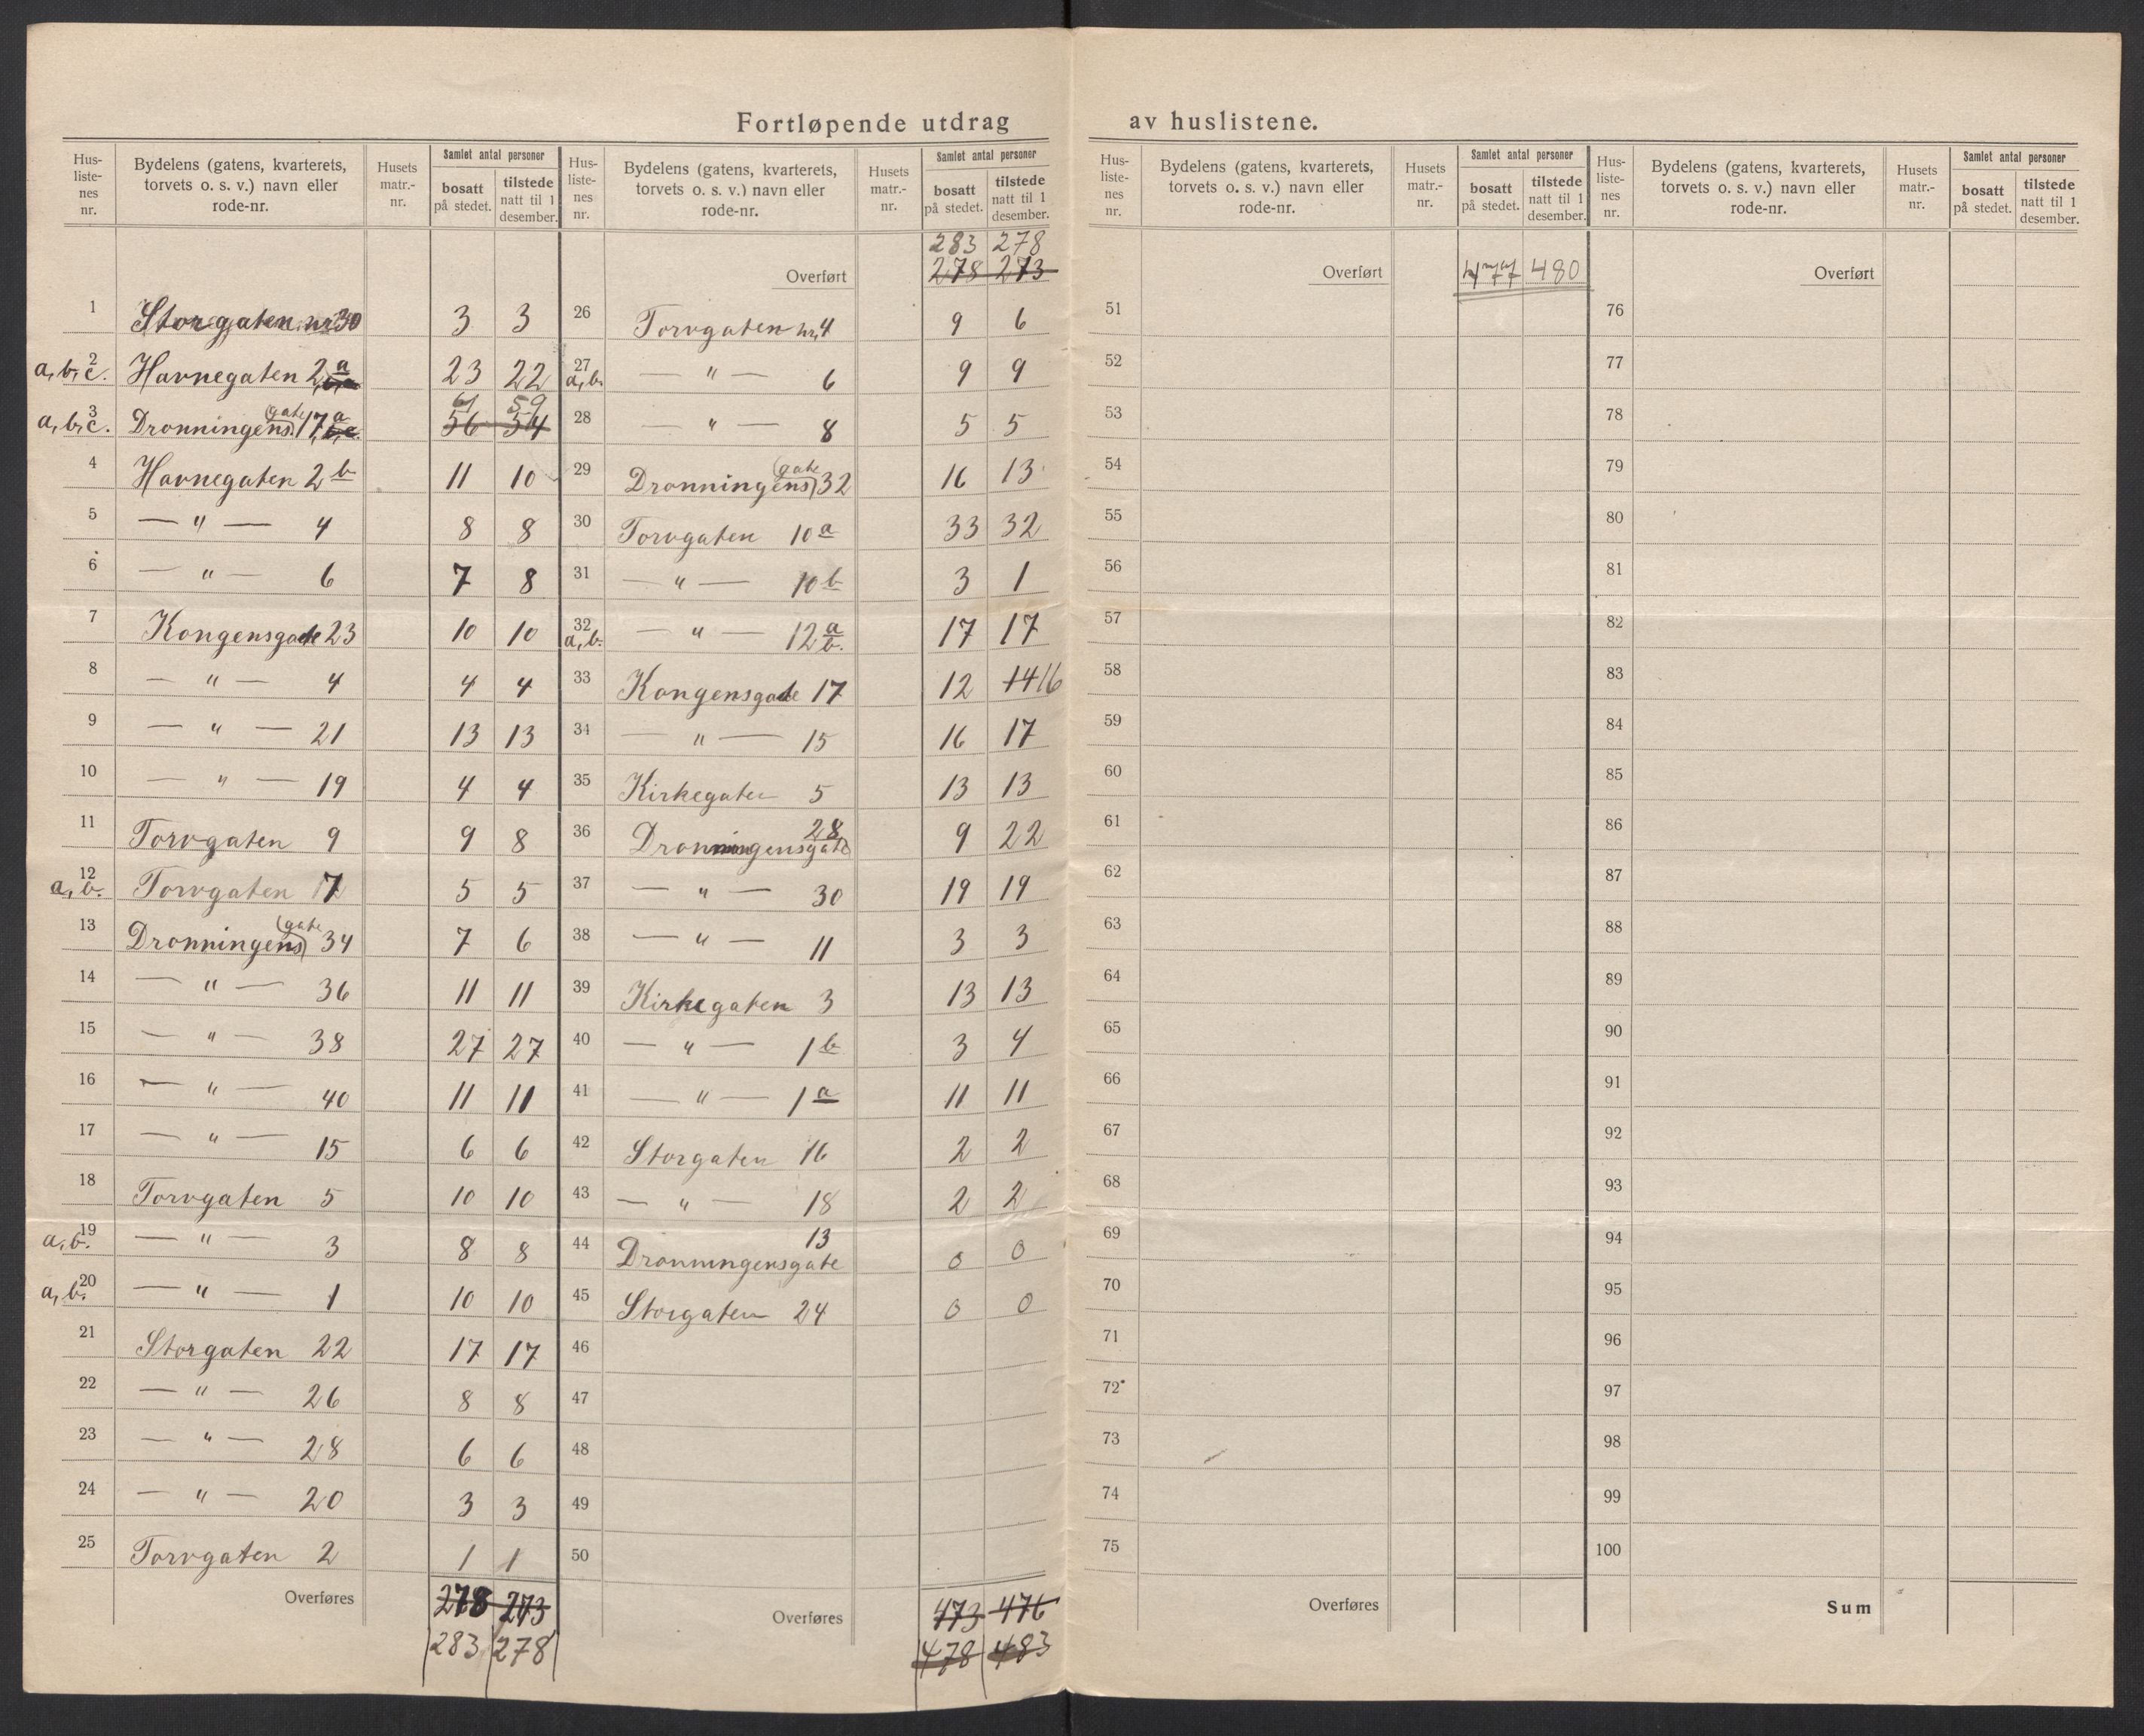 Fortløpende utdrag av huslistene.
Hus-listenes nr. | Bydelens (gatens, kvarterets, torvets o. s. v.) navn eller rode-nr. | Husets matr.-nr. | Samlet antal personer bosatt på stedet. | tilstede natt til 1 desember.
1 Storgaten nr 30 3 3
a, b, c. 2 Havnegaten 2 a 23 22
a, b, c. 3 Dronningens gate 17 a 61 59 56 54
4 Havnegaten 2 b 11 10
5 — " — 4 8 8
6 — " — 6 7 8
7 Kongensgade 23 10 10
8 — " — 4 4 4
9 — " — 21 13 13
10 — " — 19 4 4
11 Torvgaten 9 9 8
a, b. 12 Torvgaten 7 5 5
13 Dronningens gate 34 7 6
14 — " — 36 11 11
15 — " — 38 27 27
16 — " — 40 11 11
17 — " — 15 6 6
18 Torvgaten 5 10 10
a, b. 19 — " — 3 8 8
a, b. 20 — " — 1 10 10
21 Storgaten 22 17 17
22 — " — 26 8 8
23 — " — 28 6 6
24 — " — 20 3 3
25 Torvgaten 2 1 1
Overføres 278 273
283 278
Hus-listenes nr. | Bydelens (gatens, kvarterets, torvets o. s. v.) navn eller rode-nr. | Husets matr.-nr. | Samlet antal personer bosatt på stedet. | tilstede natt til 1 desember.
283 278
Overført 278 273
26 Torvgaten nr, 4 9 6
27 a, b. — " — 6 9 9
28 — " — 8 5 5
29 Dronningens gate 32 16 13
30 Torvgaten 10 a 33 32
31 — " — 10 b 3 1
32 a, b. — " — 12 a b. 17 17
33 Kongensgade 17 12 14 16
34 — " — 15 16 17
35 Kirkegaten 5 13 13
36 Dronningensgate 28 9 22
37 — " — 30 19 19
38 — " — 11 3 3
39 Kirkegaten 3 13 13
40 — " — 1 b 3 4
41 — " — 1 a 11 11
42 Storgaten 16 2 2
43 — " — 18 2 2
44 Dronningensgate 13 0 0
45 Storgaten 24 0 0
46
47
48
49
50
Overføres 473 476
478 483
Hus-listenes nr. | Bydelens (gatens, kvarterets, torvets o. s. v.) navn eller rode-nr. | Husets matr.-nr. | Samlet antal personer bosatt på stedet. | tilstede natt til 1 desember.
Overført 477 480
51
52
53
54
55
56
57
58
59
60
61
62
63
64
65
66
67
68
69
70
71
72
73
74
75
Overføres
Hus-listenes nr. | Bydelens (gatens, kvarterets, torvets o. s. v.) navn eller rode-nr. | Husets matr.-nr. | Samlet antal personer bosatt på stedet. | tilstede natt til 1 desember.
Overført
76
77
78
79
80
81
82
83
84
85
86
87
88
89
90
91
92
93
94
95
96
97
98
99
100
Sum